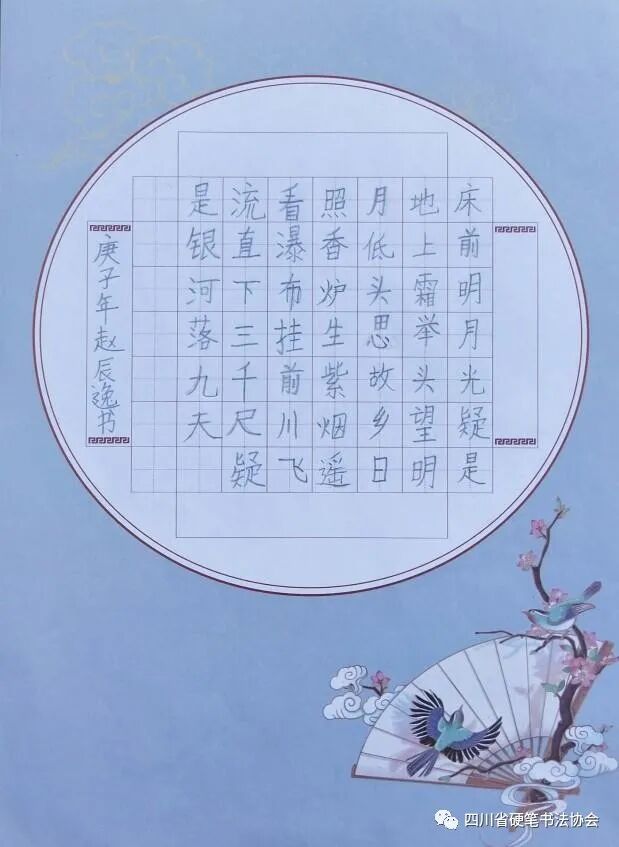 床前明月光疑是
地上霜举头望明
月低头思故乡日
照香炉生紫烟遥
看瀑布挂前川飞
流直下三千尺疑
是银河落九夫
庚子年赵辰逸书
四川省硬笔书法协会